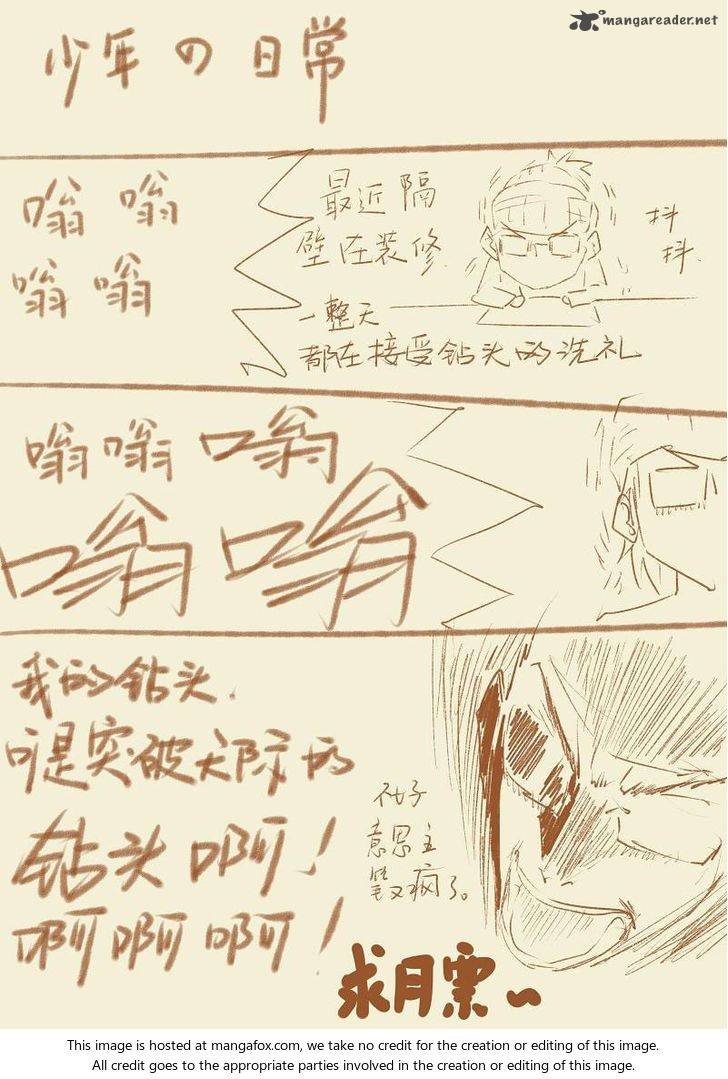 mangareader.net
少年の日常
嗡 嗡
嗡 嗡
最近隔
壁在装修
抖
抖
一整天
都在接受钻头的洗礼
嗡嗡嗡
嗡嗡
我的钻头
可是突破天际的
钻头啊！
啊啊啊！
不好
意思主
笔又疯了。
求月票~
This image is hosted at mangafox.com, we take no credit for the creation or editing of this image.
All credit goes to the appropriate parties involved in the creation or editing of this image.